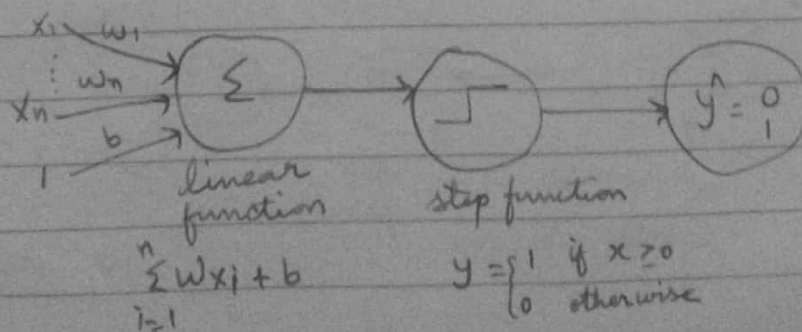 x1 w1
⋮ wn
xn
b
1
Σ
ŷ = 0
1
linear
function
step function
n
Σ wxi + b
i=1
y = { 1 if x ≥ 0
0 otherwise